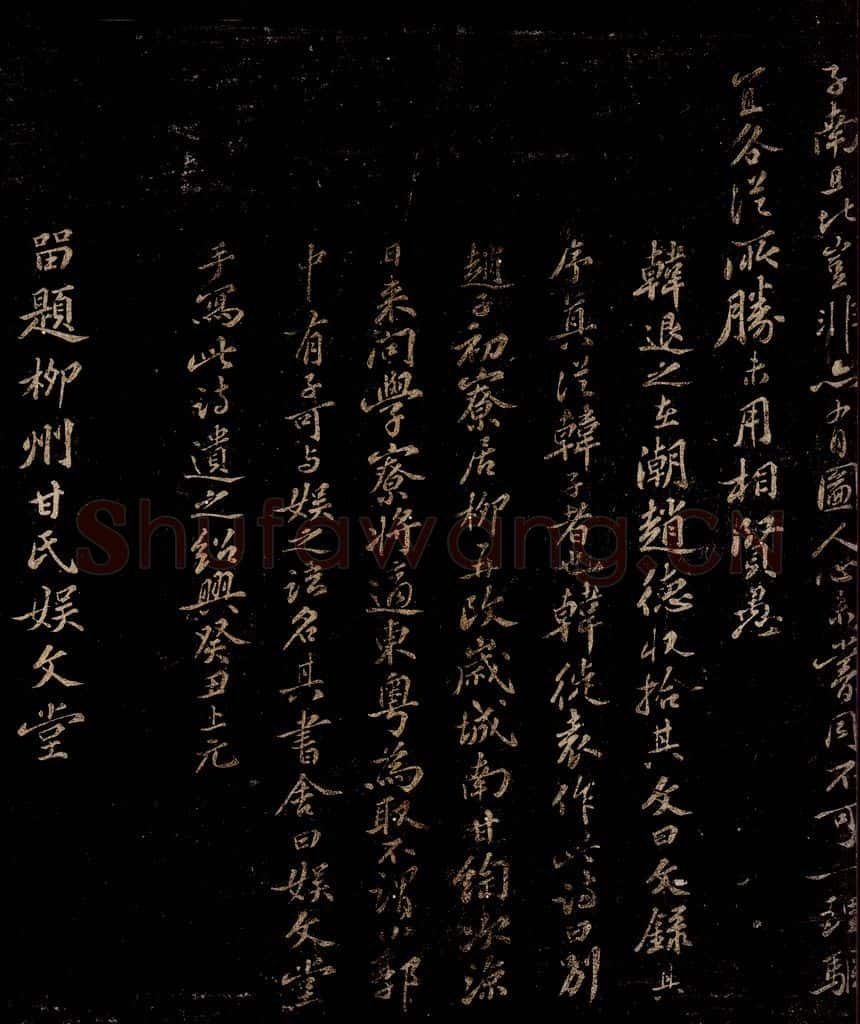 子南且北豈非亦有圖人心未嘗同不可一理驅
宜各從所勝未用相賢愚
韓退之在潮趙德收拾其文曰文錄其
序真從韓子者也韓徙袁作此詩曰別
趙子初寮居柳再改歲城南甘絢次源
日來問學寮將適東粵為取不謂小郭
中有子可与娛之語名其書舍曰娛文堂
手寫此詩遺之紹興癸丑上元
留題柳州甘氏娛文堂
Shufawang.CN